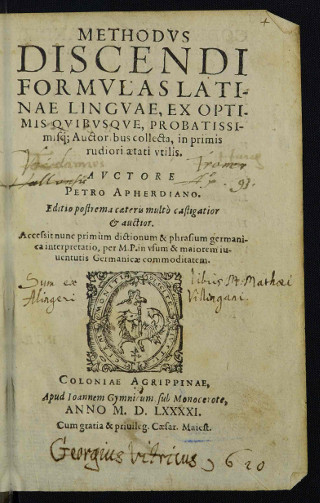 METHODVS
DISCENDI
FORMVLAS LATI-
NAE LINGVAE, EX OPTI-
MIS QVIBVSQVE, PROBATISSI-
misq; Auctoribus collecta, in primis
rudiori ætati vtilis.
AVCTORE
PETRO APHERDIANO.
Editio postrema cæteris multò castigatior
& auctior.
Accessit nunc primùm dictionum & phrasium germani-
ca interpretatio, per M.P. in vsum & maiorem iu-
uentutis Germanicæ commoditatem.
Sum ex libris
COLONIAE AGRIPPINAE,
Apud Ioannem Gymnicum sub Monocerote,
ANNO M. D. LXXXXI.
Cum gratia & priuileg. Cæsar. Maiest.
Georgius 1620